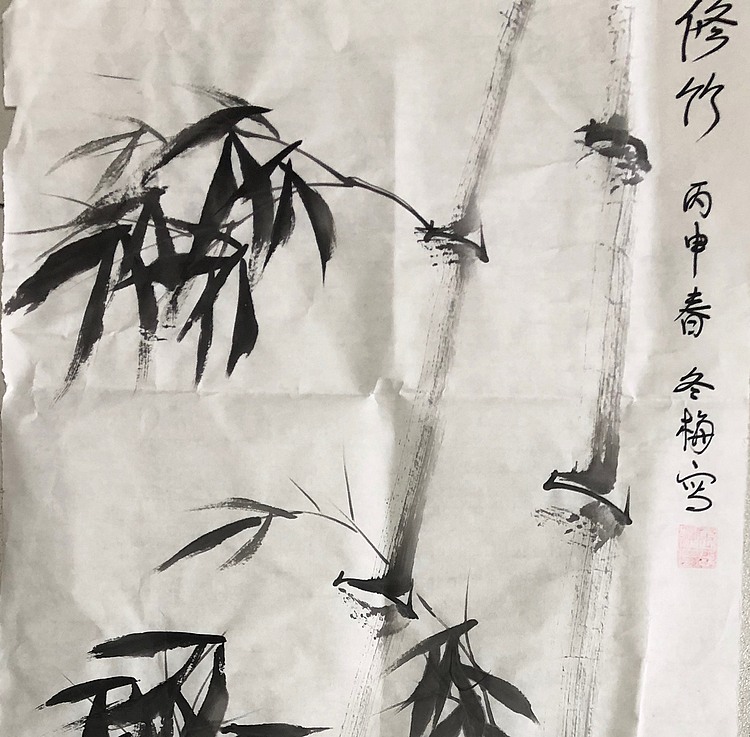 修竹 丙申春 冬梅写